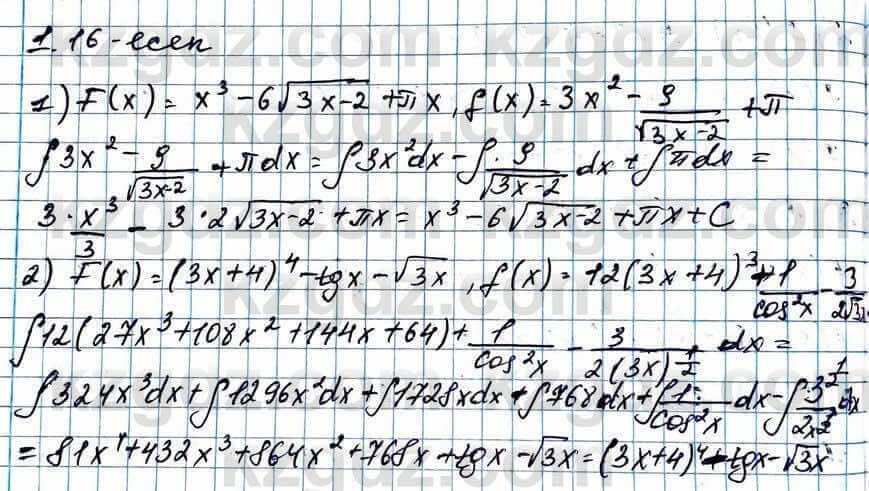 1.16-есеп
1) F(x) = x³ - 6√(3x-2) + πx, f(x) = 3x² - 9/√(3x-2) + π
∫3x² - 9/√(3x-2) + πdx = ∫3x²dx - ∫9/√(3x-2) dx + ∫πdx =
3·x³/3 - 3·2√(3x-2) + πx = x³ - 6√(3x-2) + πx + C
2) F(x) = (3x+4)⁴ - tgx - √3x, f(x) = 12(3x+4)³ + 1/cos²x - 3/2√3x
∫12(27x³ + 108x² + 144x + 64) + 1/cos²x - 3/2(3x)^½ dx =
∫324x³dx + ∫1296x²dx + ∫1728xdx + ∫768dx + ∫1/cos²x dx - ∫3^½/2x^½ dx
= 81x⁴ + 432x³ + 864x² + 768x + tgx - √3x = (3x+4)⁴ - tgx - √3x
kzgdz.com